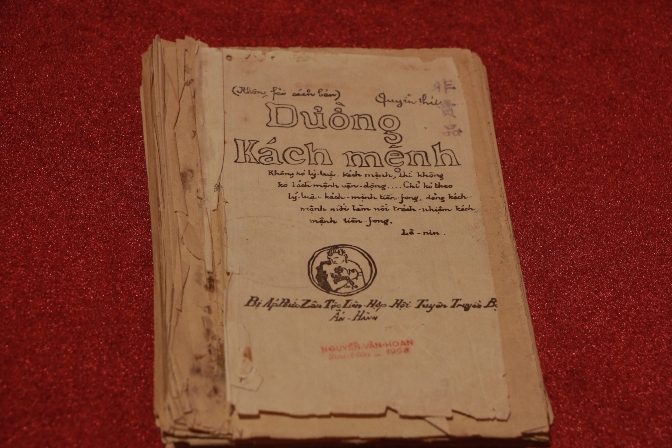 (Không fải sách bán)
Quyển thứ
Đường
Kách mệnh
Không có lý luận kách mệnh, thì không
có kách mệnh vận-động.... Chỉ có theo
lý luận kách-mệnh tiền fong, đảng kách
mệnh mới làm nổi trách-nhiệm kách
mệnh tiền-fong.
Lê-nin.
Bị Áp Bức Zân Tộc Liên Hợp Hội Tuyên Truyền Bộ
Ấn-Hành
NGUYỄN-VĂN-HOAN
1968